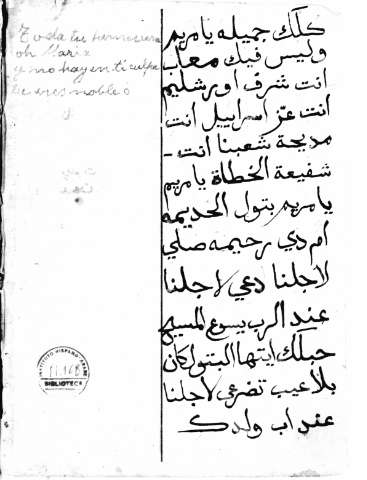 Toda tu hermosura
oh Maria
y no hay en ti culpa
eres noble
كلّك جميله يا مريم
وليس فيك معاب
انت شرف اورشليم
انت عزّ اسراييل انت
مديحة شعبنا انت -
شفيعة الخطاة يا مريم
يا مريم بتول الحديمه
ام دي رحيمه صلي
لاجلنا دعي لاجلنا
عند الرب يسوع المسيح
حبلك ايتها البتول كان
بلا عيب تضرعي لاجلنا
عند اب ولدك
INSTITUTO HISPANO-ARABE
BIBLIOTECA